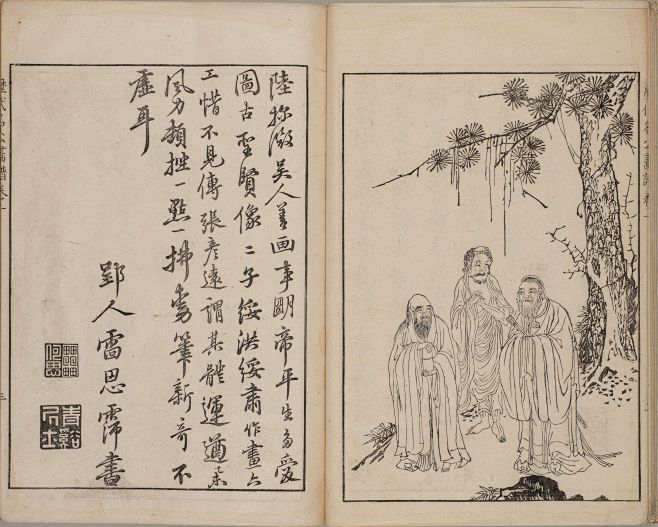 歷代名公畫譜卷一
陸探微吳人善画事明帝平生多愛
圖古聖賢像二子綏洪綏肅作畫亦
工惜不見傳張彥遠謂其體運遒举
風力頓挫一點一拂動筆新奇不
虛耳
郢人雷思霈書
歷代名公畫譜卷一
三